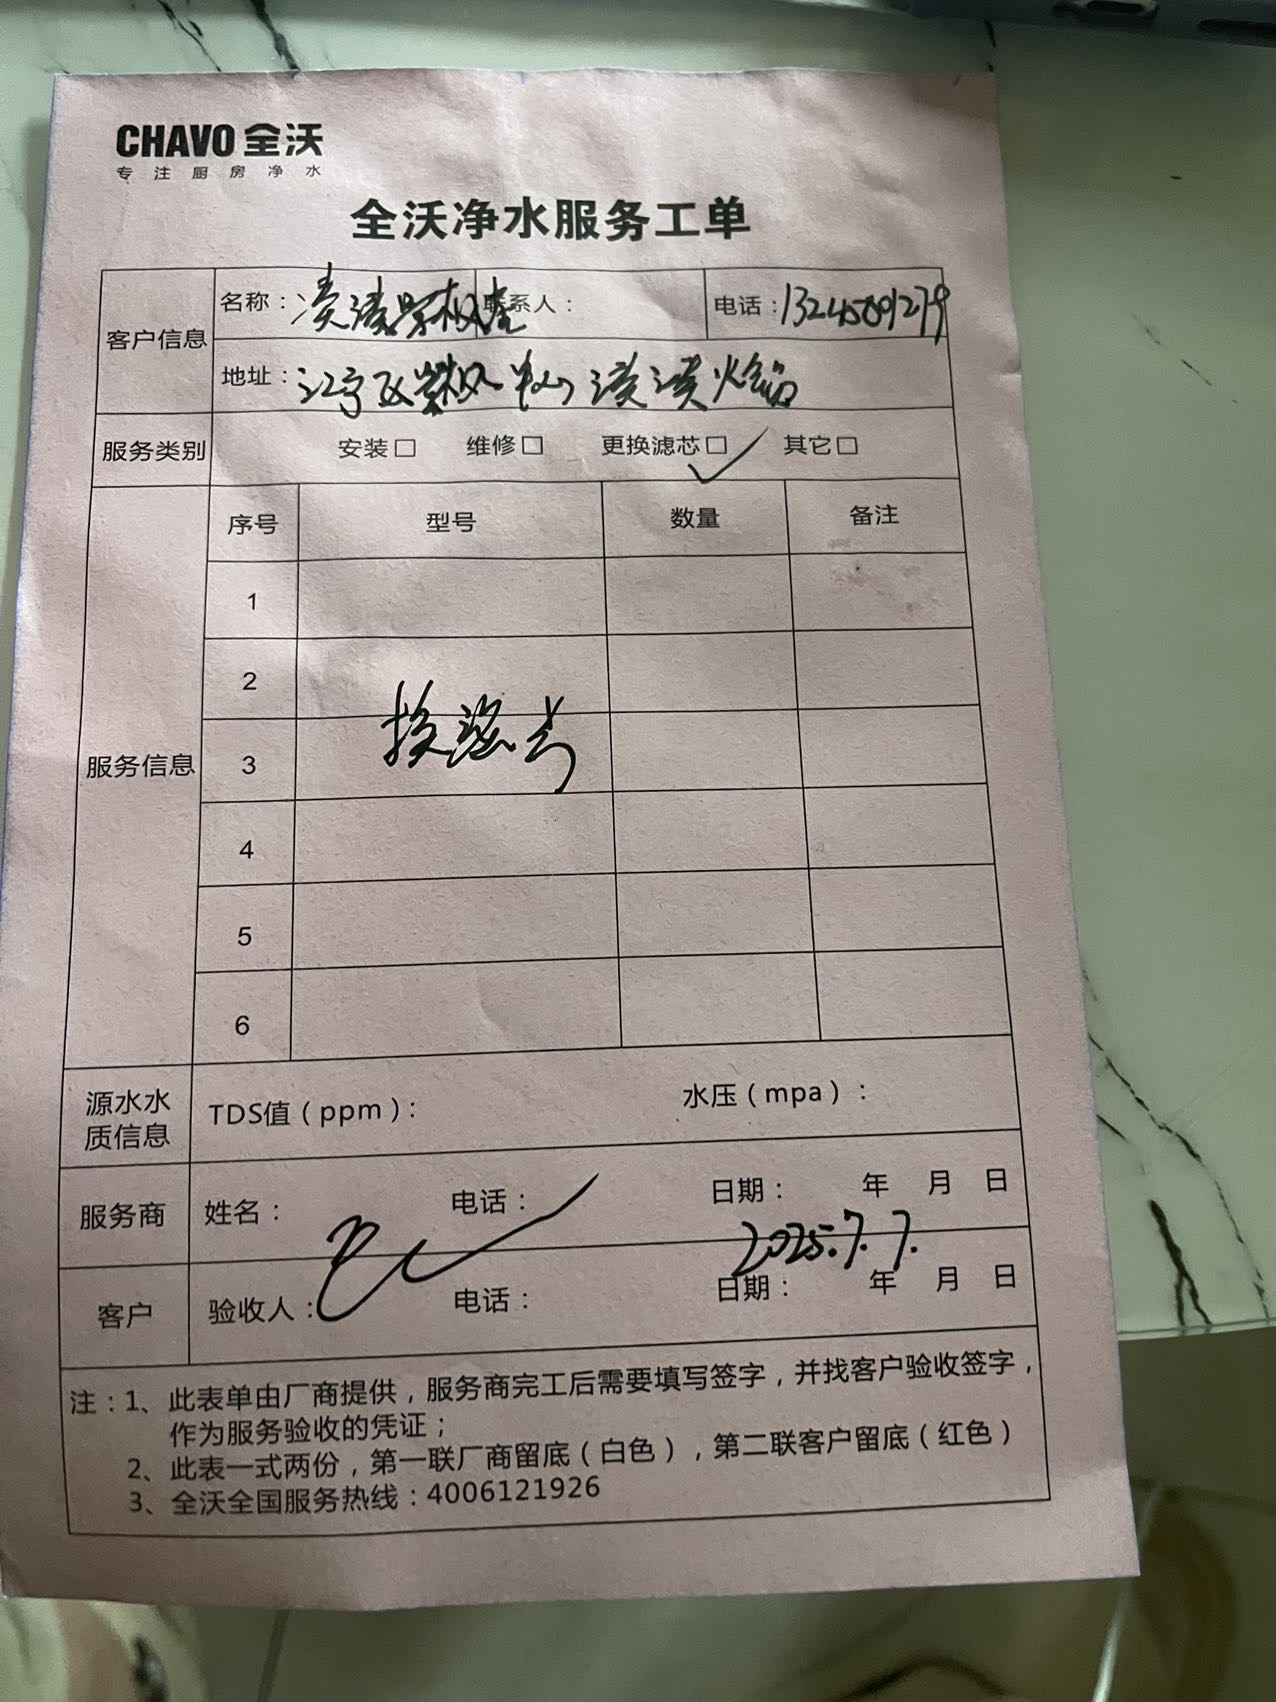 CHAVO 全沃
专注厨房净水
全沃净水服务工单
客户信息
名称： 联系人： 电话：
地址：江宁区
服务类别 安装□ 维修□ 更换滤芯□ ✓ 其它□
服务信息
序号 型号 数量 备注
1
2
3 换滤芯
4
5
6
源水水质信息 TDS值（ppm）： 水压（mpa）：
服务商 姓名： 电话： 日期： 年 月 日
2025.7.7.
客户 验收人： 电话： 日期： 年 月 日
注：1、此表单由厂商提供，服务商完工后需要填写签字，并找客户验收签字，
作为服务验收的凭证；
2、此表一式两份，第一联厂商留底（白色），第二联客户留底（红色）
3、全沃全国服务热线：4006121926